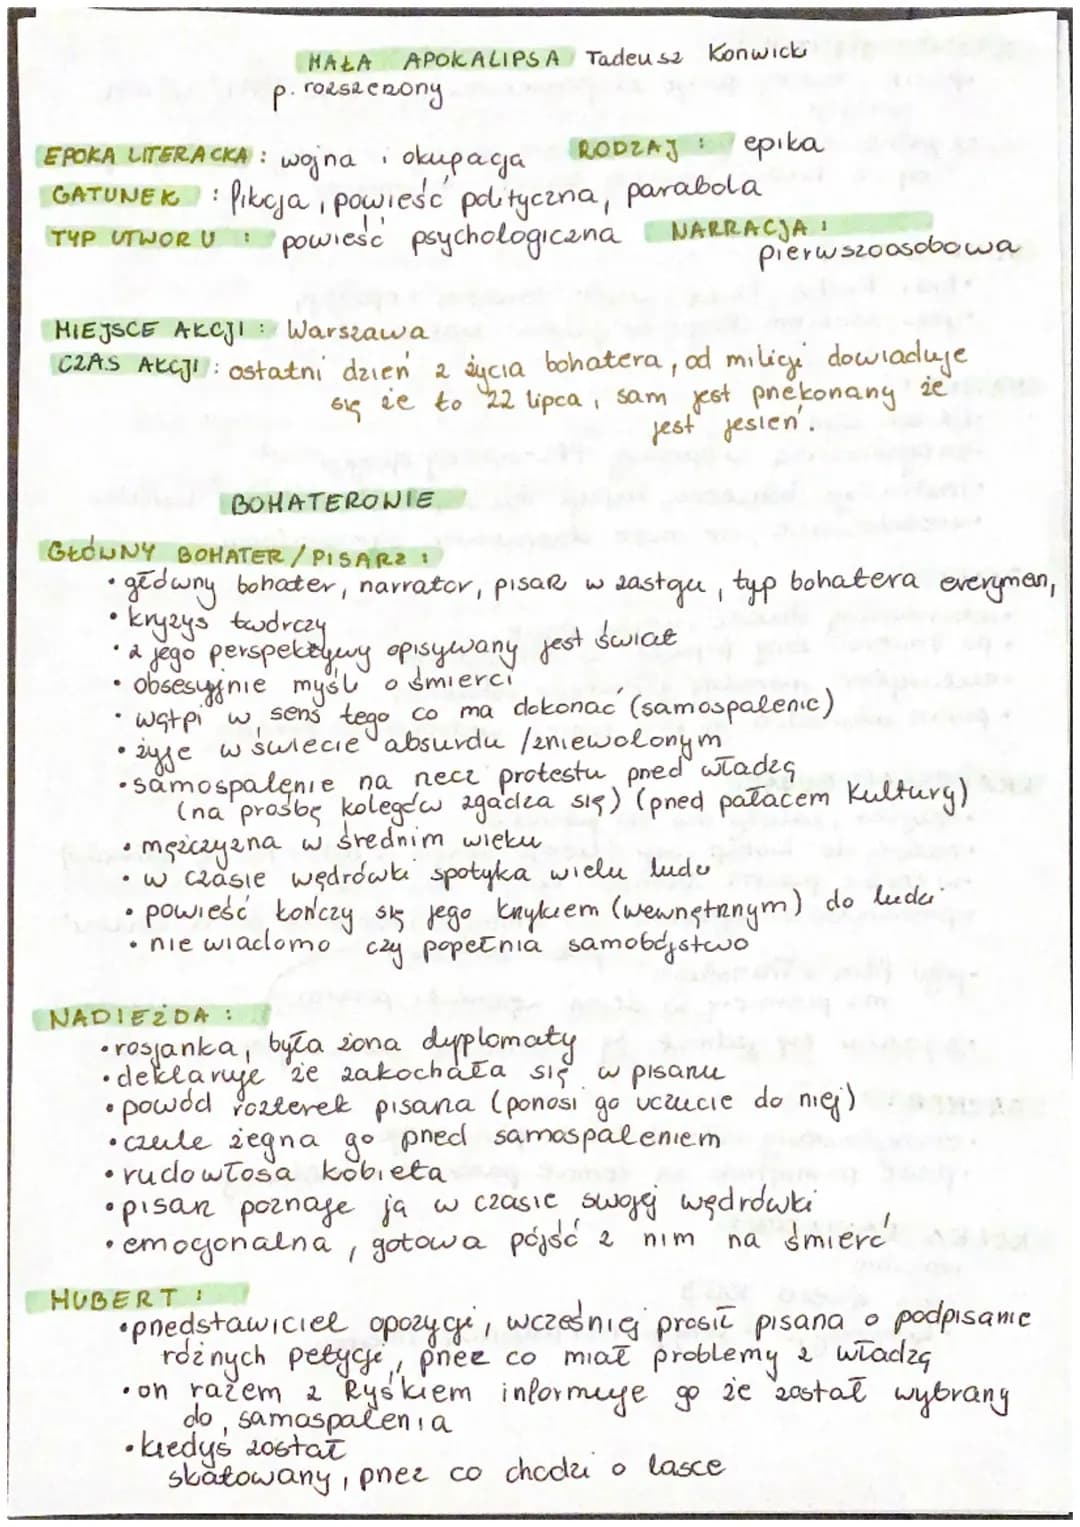 MAŁA APOKALIPSA Tadeusz Konwicki
p. rozszerzony
EPOKA LITERACKA: wojna i okupacja RODZAJ: epika
GATUNEK: fikcja, powieść polityczna, parabola
TYP UTWORU: powieść psychologiczna NARRACJA: pierwszoosobowa
MIEJSCE AKCJI: Warszawa
CZAS AKCJI: ostatni dzień z życia bohatera, od milicji dowiaduje
się że to 22 lipca, sam jest przekonany że
jest jesień.
BOHATEROWIE
GŁÓWNY BOHATER/PISARZ:
• główny bohater, narrator, pisarz w zastoju, typ bohatera everyman,
• kryzys twórczy
• z jego perspektywy opisywany jest świat
• obsesyjnie myśli o śmierci
• wątpi w sens tego co ma dokonać (samospalenie)
• żyje w świecie absurdu /zniewolonym
• samospalenie na rzecz protestu przed władzą
(na prośbę kolegów zgadza się) (przed pałacem Kultury)
• mężczyzna w średnim wieku
• w czasie wędrówki spotyka wielu ludzi
• powieść kończy się jego krzykiem (wewnętrznym) do ludzi
• nie wiadomo czy popełnia samobójstwo
NADIEŻDA:
• rosjanka, była żona dyplomaty
• deklaruje że zakochała się w pisarzu
• powód rozterek pisarza (ponosi go uczucie do niej)
• czule żegna go przed samospaleniem
• rudowłosa kobieta
• pisarz poznaje ją w czasie swojej wędrówki
• emocjonalna, gotowa pójść z nim na śmierć
HUBERT:
• przedstawiciel opozycji, wcześniej prosił pisarza o podpisanie
różnych petycji, przez co miał problemy z władzą
• on razem z Ryśkiem informuje go że został wybrany
do samospalenia
• kiedyś został
skatowany, przez co chodzi o lasce